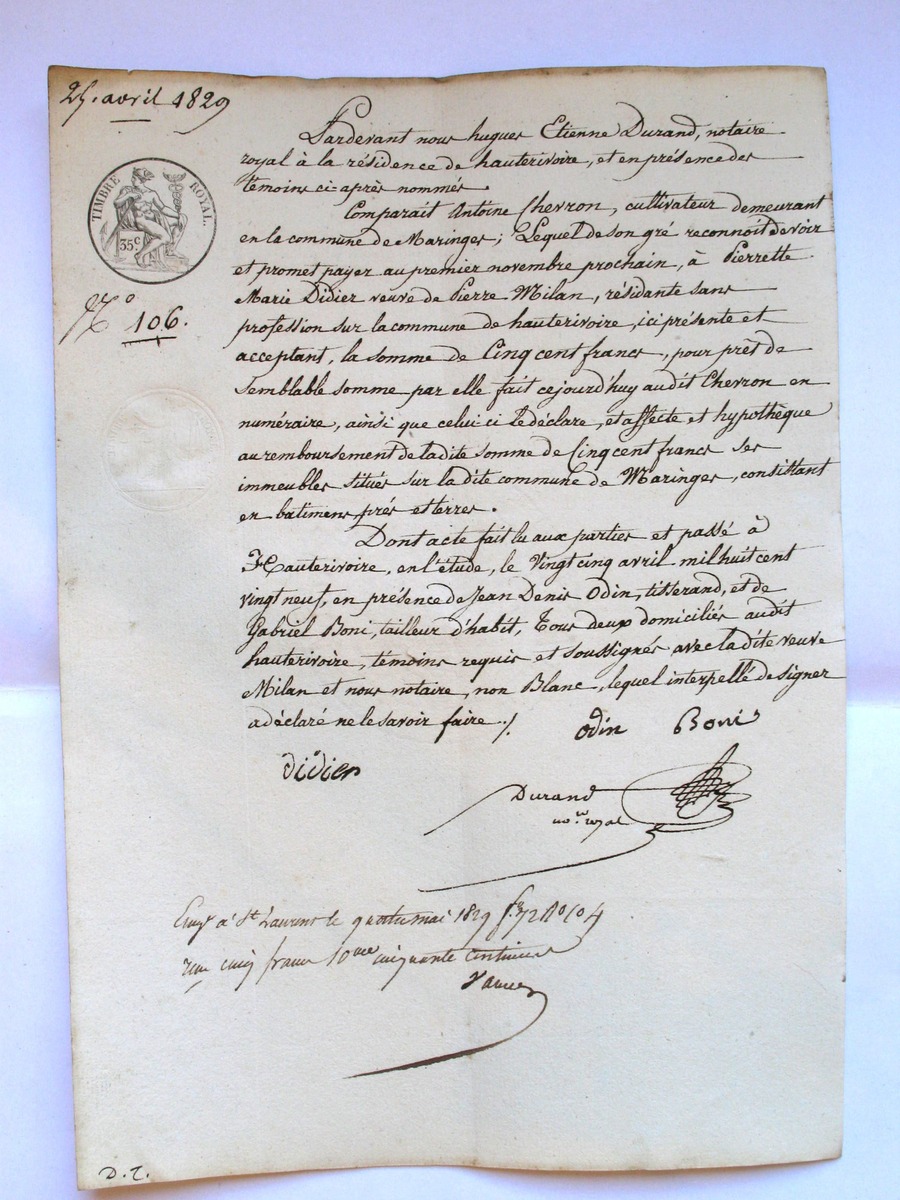 25. avril 1829
TIMBRE ROYAL.
35.c
N.o 106.
Pardevant nous hugues Etienne Durand, notaire
royal à la résidence de hauterivoire, et en présence des
témoins ci-après nommés.
Comparait Antoine Chevron, cultivateur demeurant
en la commune de Maringes; Lequel de son gré reconnoit devoir
et promet payer au premier novembre prochain, à Pierrette
Marie Didier veuve de Pierre Milan, résidante sans
profession sur la commune de hauterivoire, ici présente et
acceptant, la somme de Cinq cent francs, pour prêt de
semblable somme par elle fait cejourd'huy audit Chevron en
numéraire, ainsi que celui-ci le déclare, et affecte et hypothèque
au remboursement de la dite somme de Cinq cent francs ses
immeubles situés sur la dite commune de Maringes, consistant
en batimens, prés et terres.
Dont acte fait lu aux parties et passé à
Hauterivoire, en l'étude, le Vingt cinq avril mil huit cent
vingt neuf, en présence de Jean Denis Odin, tisserand, et de
Gabriel Boni, tailleur d'habit, Tous deux domiciliés audit
hauterivoire, témoins requis et soussignés avec la dite veuve
Milan et nous notaire, non Blanc, lequel interpellé de signer
a déclaré ne le savoir faire ./.
odin Boni
didier
Durand
no.re royal
Enrg.é à St Laurent le quatre mai 1829 f.o 72 Ro C 4
reçu cinq francs 10me cinquante centimes
D.T.